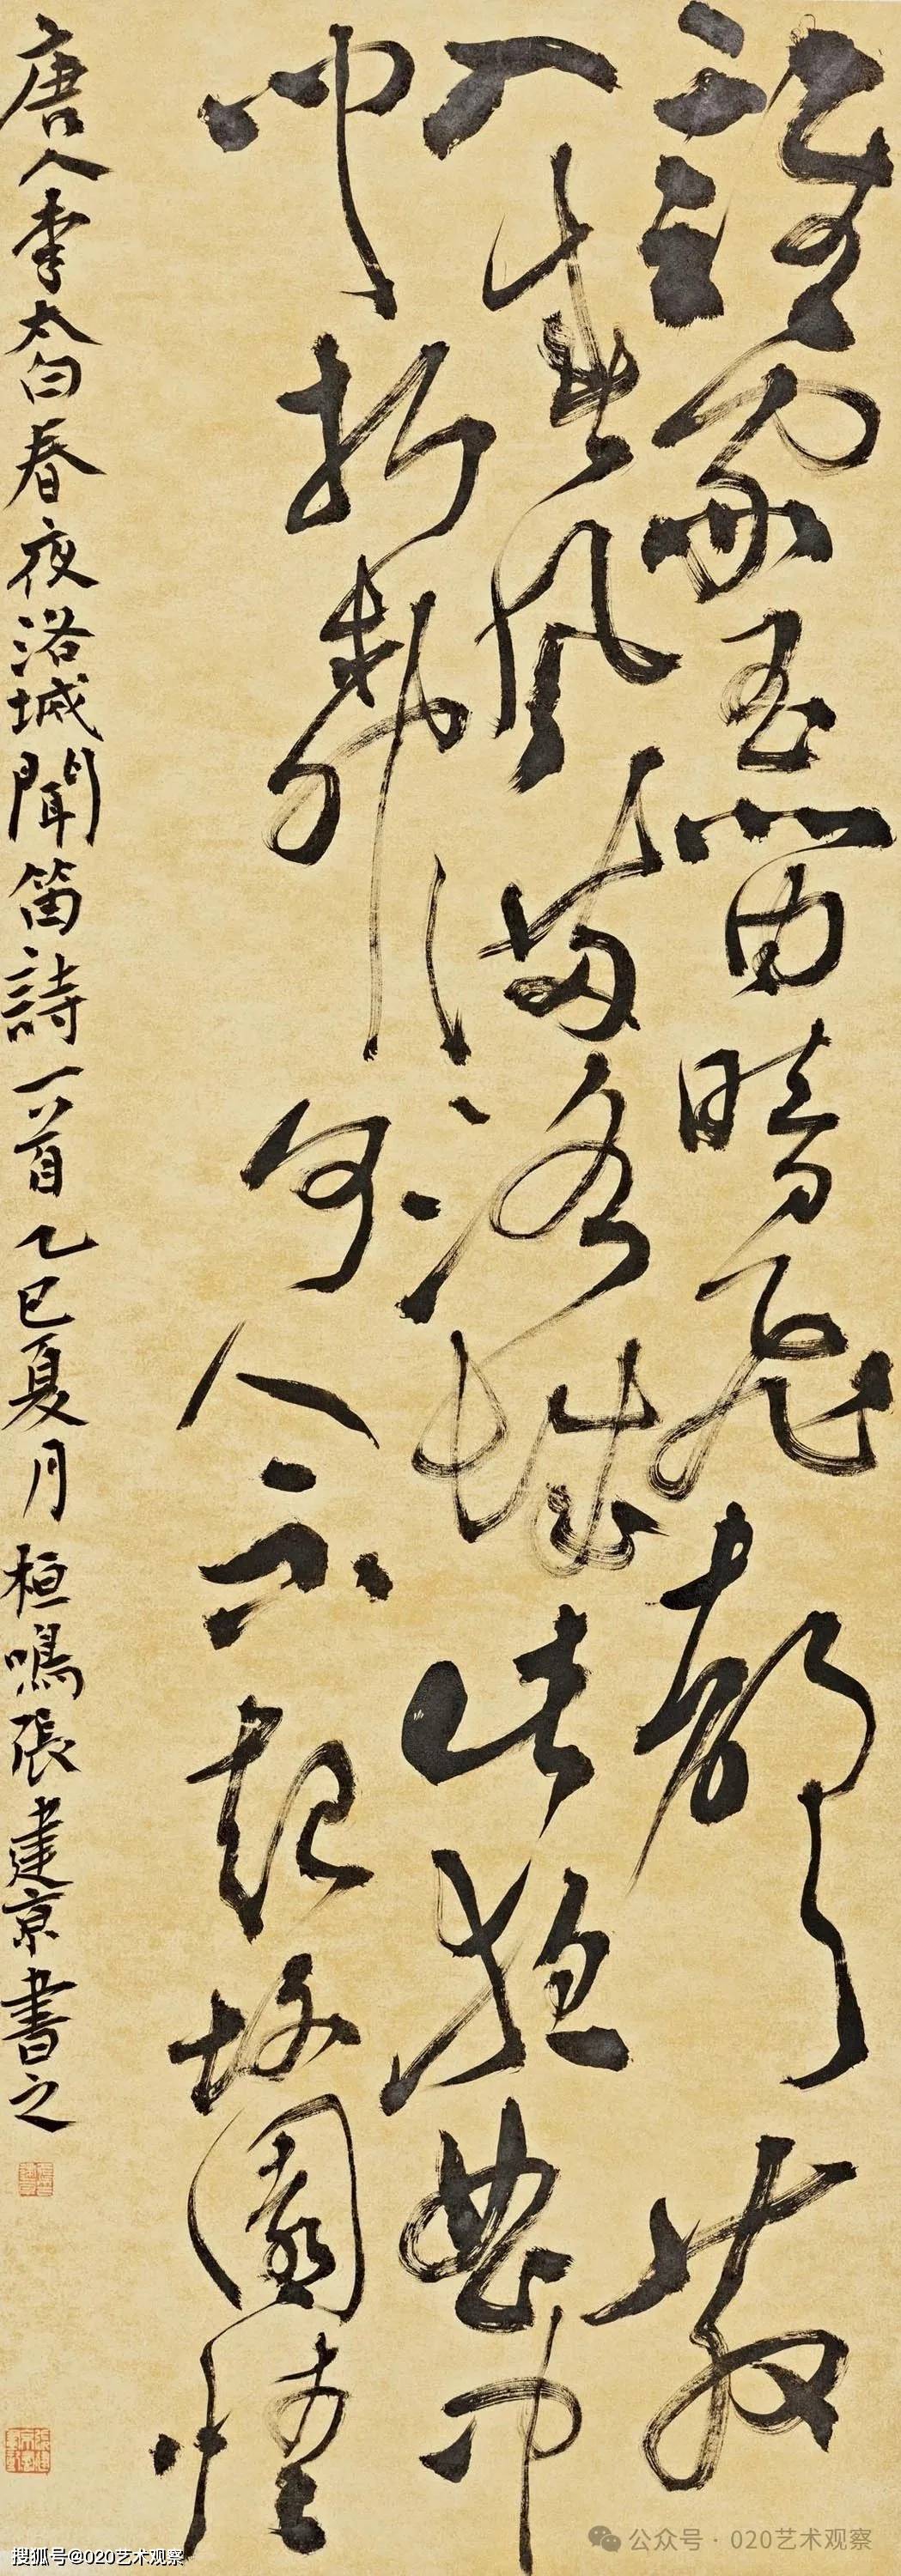 誰家玉笛暗飛聲散
入春風滿洛城此夜曲中
聞折柳何人不起故園情
唐人李太白春夜洛城聞笛詩一首乙巳夏月桓鳴張建京書之
公众号·020艺术观察
搜狐号@020艺术观察